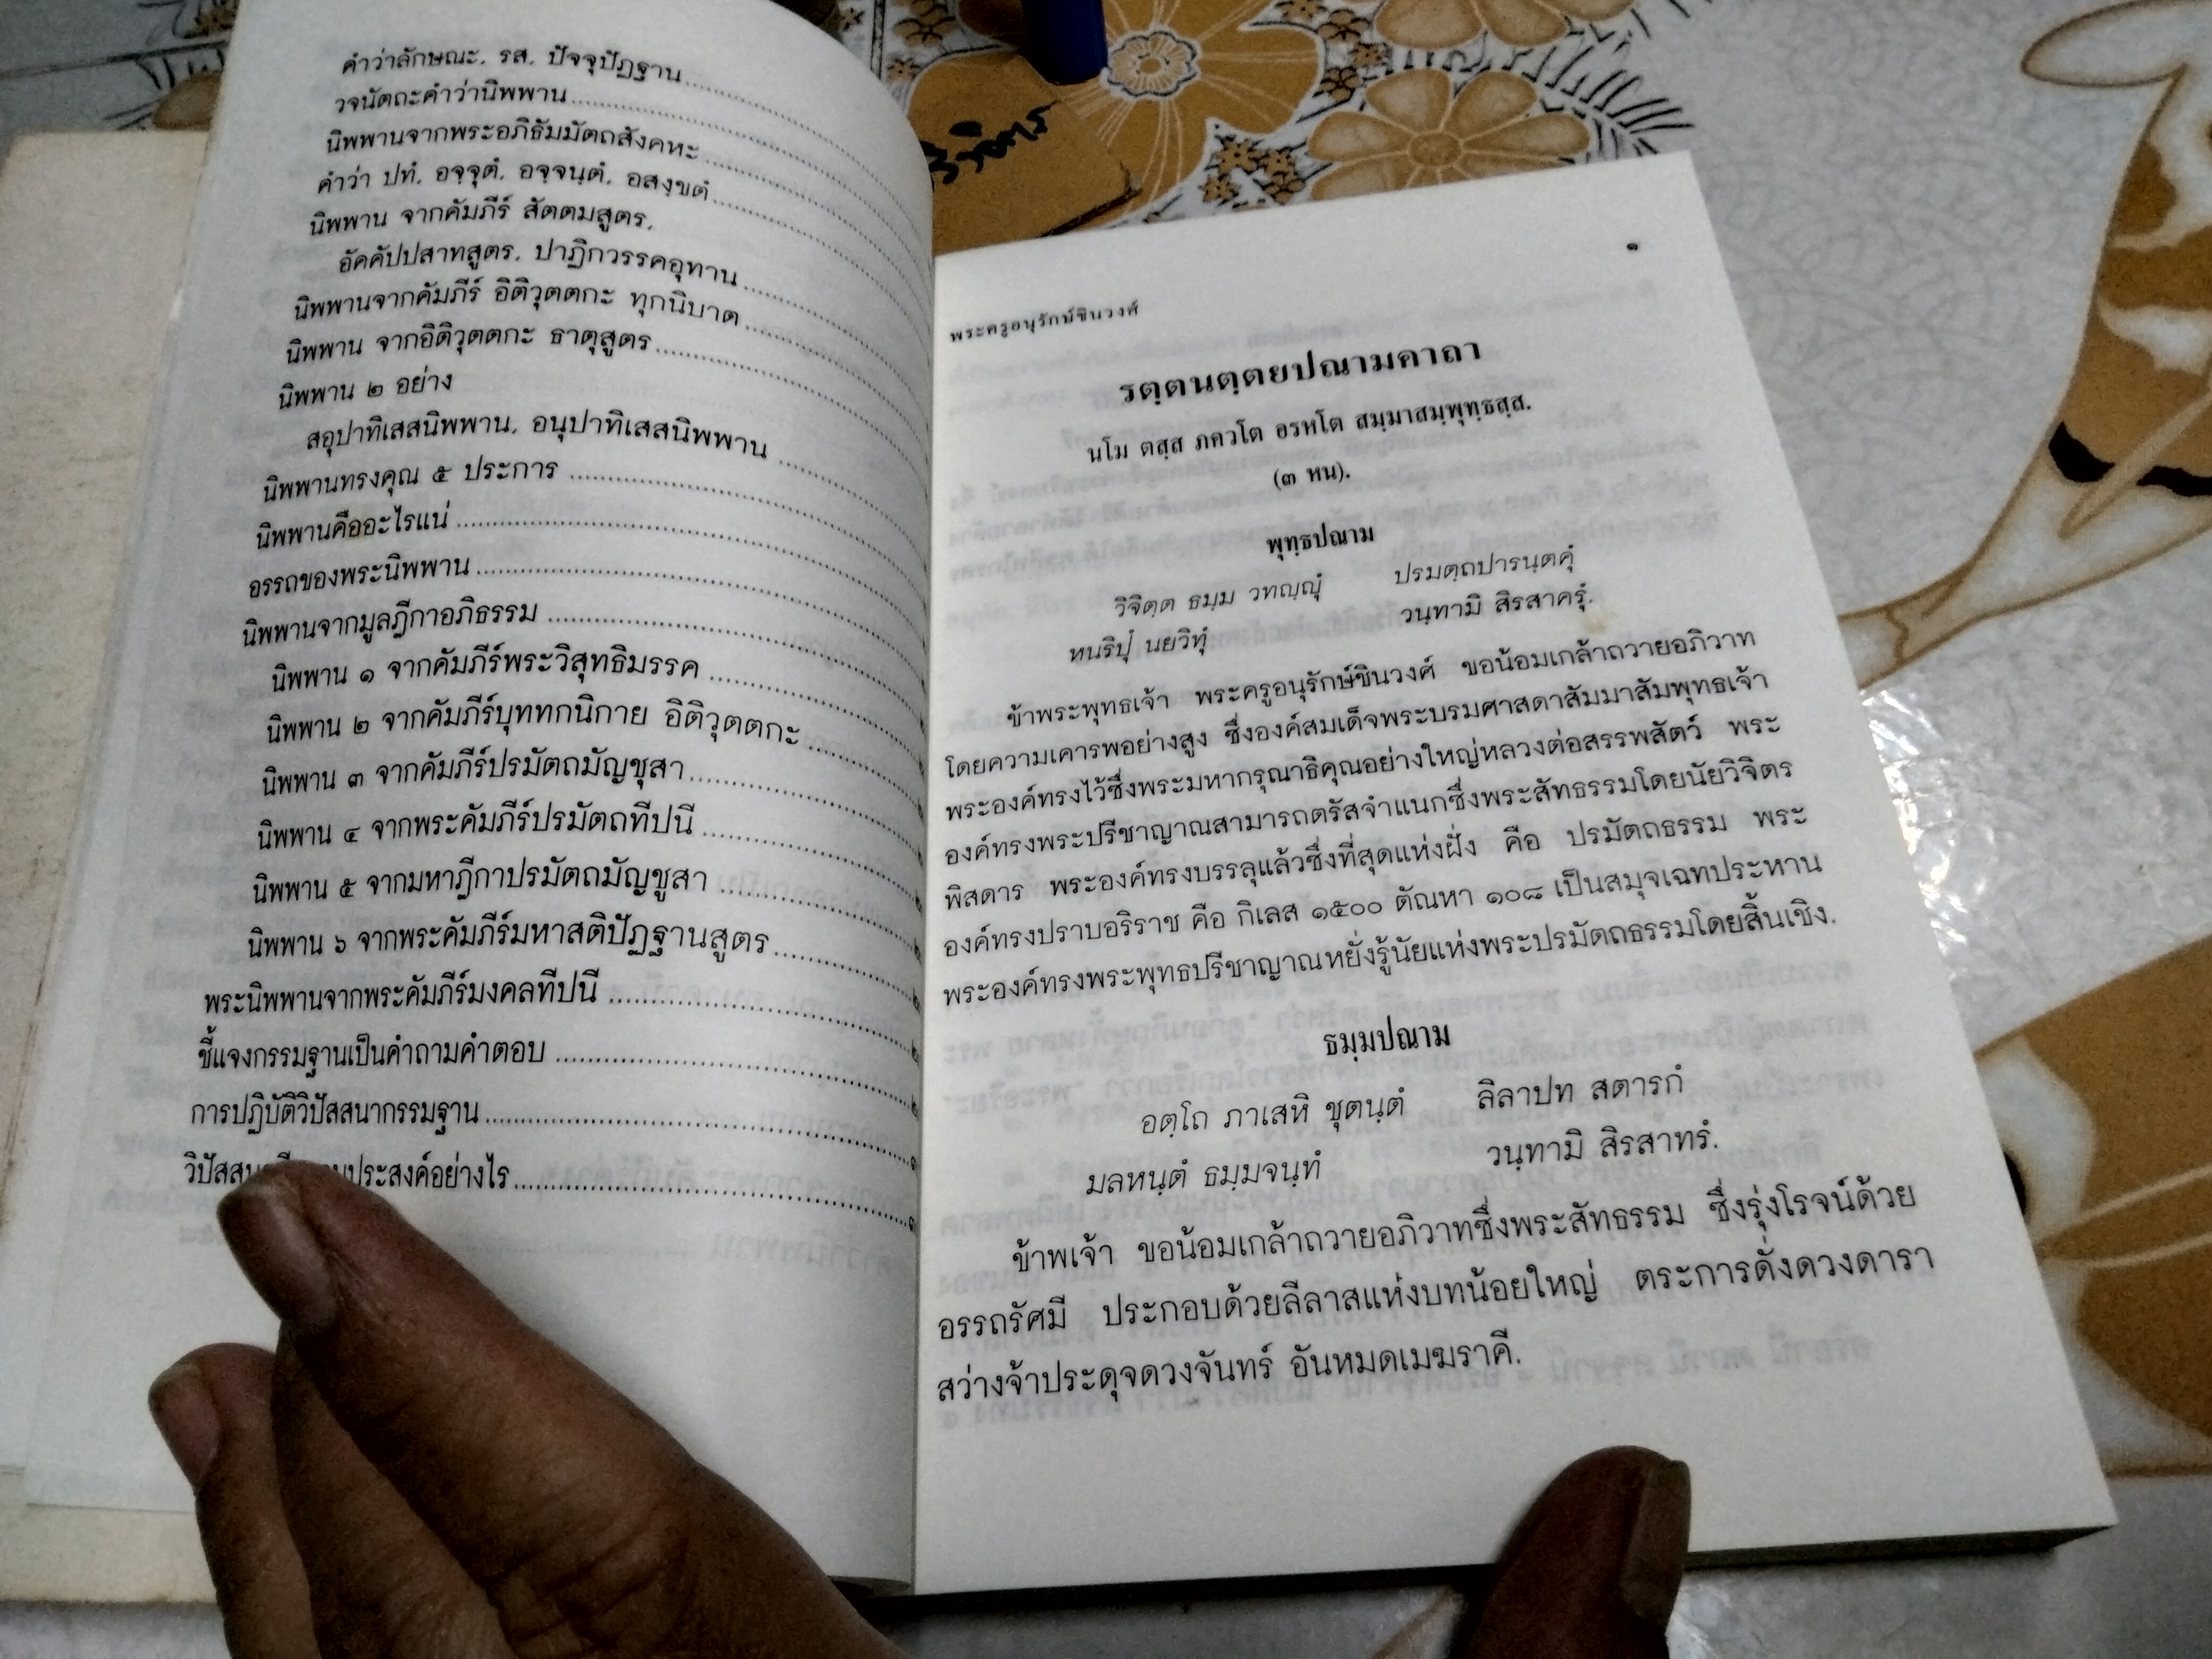 คำว่าลักษณะ, รส, ปัจจุปัฏฐาน
วจนัตถะคำว่านิพพาน
นิพพานจากพระอภิธัมมัตถสังคหะ
คำว่า ปทํ, อจฺจุตํ, อจฺจนฺตํ, อสงฺขตํ
นิพพาน จากคัมภีร์ สัตตมสูตร,
อัคคัปปสาทสูตร, ปาฏิกวรรคอุทาน
นิพพานจากคัมภีร์ อิติวุตตกะ ทุกนิบาต
นิพพาน จากอิติวุตตกะ ธาตุสูตร
นิพพาน ๒ อย่าง
สอุปาทิเสสนิพพาน, อนุปาทิเสสนิพพาน
นิพพานทรงคุณ ๕ ประการ
นิพพานคืออะไรแน่
อรรถของพระนิพพาน
นิพพานจากมูลฎีกาอภิธรรม
นิพพาน ๑ จากคัมภีร์พระวิสุทธิมรรค
นิพพาน ๒ จากคัมภีร์บุททกนิกาย อิติวุตตกะ
นิพพาน ๓ จากคัมภีร์ปรมัตถมัญชุสา
นิพพาน ๔ จากพระคัมภีร์ปรมัตถทีปนี
นิพพาน ๕ จากมหาฎีกาปรมัตถมัญชูสา
นิพพาน ๖ จากพระคัมภีร์มหาสติปัฏฐานสูตร
พระนิพพานจากพระคัมภีร์มงคลทีปนี
ชี้แจงกรรมฐานเป็นคำถามคำตอบ
การปฏิบัติวิปัสสนากรรมฐาน
ประสงค์อย่างไร
๑
พระครูอนุรักษ์ชินวงศ์
รตฺตนตฺตยปณามคาถา
นโม ตสฺส ภควโต อรหโต สมฺมาสมฺพุทฺธสฺส.
(๓ หน).
พุทฺธปณาม
วิจิตฺต ธมฺม วทญฺญุํ ปรมตฺถปารนฺตคุํ
หนริปุํ นยวิทุํ วนฺทามิ สิรสาครุํ.
ข้าพระพุทธเจ้า พระครูอนุรักษ์ชินวงศ์ ขอน้อมเกล้าถวายอภิวาท
โดยความเคารพอย่างสูง ซึ่งองค์สมเด็จพระบรมศาสดาสัมมาสัมพุทธเจ้า
พระองค์ทรงไว้ซึ่งพระมหากรุณาธิคุณอย่างใหญ่หลวงต่อสรรพสัตว์ พระ
องค์ทรงพระปรีชาญาณสามารถตรัสจำแนกซึ่งพระสัทธรรมโดยนัยวิจิตร
พิสดาร พระองค์ทรงบรรลุแล้วซึ่งที่สุดแห่งฝั่ง คือ ปรมัตถธรรม พระ
องค์ทรงปราบอริราช คือ กิเลส ๑๕๐๐ ตัณหา ๑๐๘ เป็นสมุจเฉทประหาน
พระองค์ทรงพระพุทธปรีชาญาณหยั่งรู้นัยแห่งพระปรมัตถธรรมโดยสิ้นเชิง.
ธมฺมปณาม
อตฺโถ ภาเสหิ ชุตนฺตํ ลิลาปท สตารกํ
มลหนฺตํ ธมฺมจนฺทํ วนฺทามิ สิรสาทรํ.
ข้าพเจ้า ขอน้อมเกล้าถวายอภิวาทซึ่งพระสัทธรรม ซึ่งรุ่งโรจน์ด้วย
อรรถรัศมี ประกอบด้วยลีลาสแห่งบทน้อยใหญ่ ตระการดั่งดวงดารา
สว่างจ้าประดุจดวงจันทร์ อันหมดเมฆราคี.